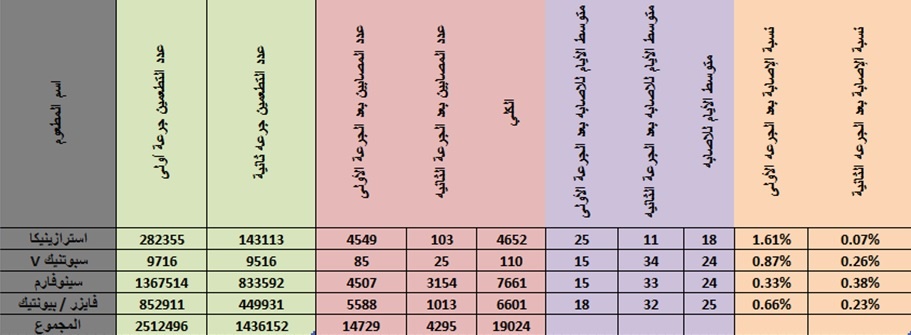 اسم المطعوم | عدد المتطعمين جرعة أولى | عدد المتطعمين جرعه ثانية | عدد المصابين بعد الجرعة الأولى | عدد المصابين بعد الجرعة الثانيه | الكلي | متوسط الأيام للاصابه بعد الجرعة الأولى | متوسط الأيام للاصابه بعد الجرعة الثانيه | متوسط الأيام للاصابه | نسبة الإصابة بعد الجرعه الأولى | نسبة الإصابة بعد الجرعة الثانية
استرازينيكا | 282355 | 143113 | 4549 | 103 | 4652 | 25 | 11 | 18 | 1.61% | 0.07%
سبوتنيك V | 9716 | 9516 | 85 | 25 | 110 | 15 | 34 | 24 | 0.87% | 0.26%
سينوفارم | 1367514 | 833592 | 4507 | 3154 | 7661 | 15 | 33 | 24 | 0.33% | 0.38%
فايزر / بيونتيك | 852911 | 449931 | 5588 | 1013 | 6601 | 18 | 32 | 25 | 0.66% | 0.23%
المجموع | 2512496 | 1436152 | 14729 | 4295 | 19024